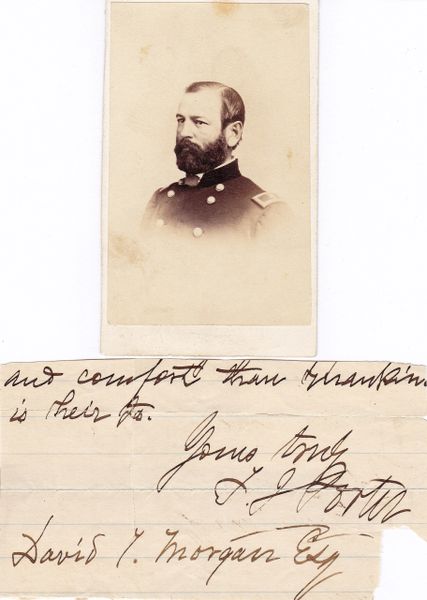 and comfort than mankind
is heir to.
Yours truly
F. J. Porter
David T. Morgan Esq